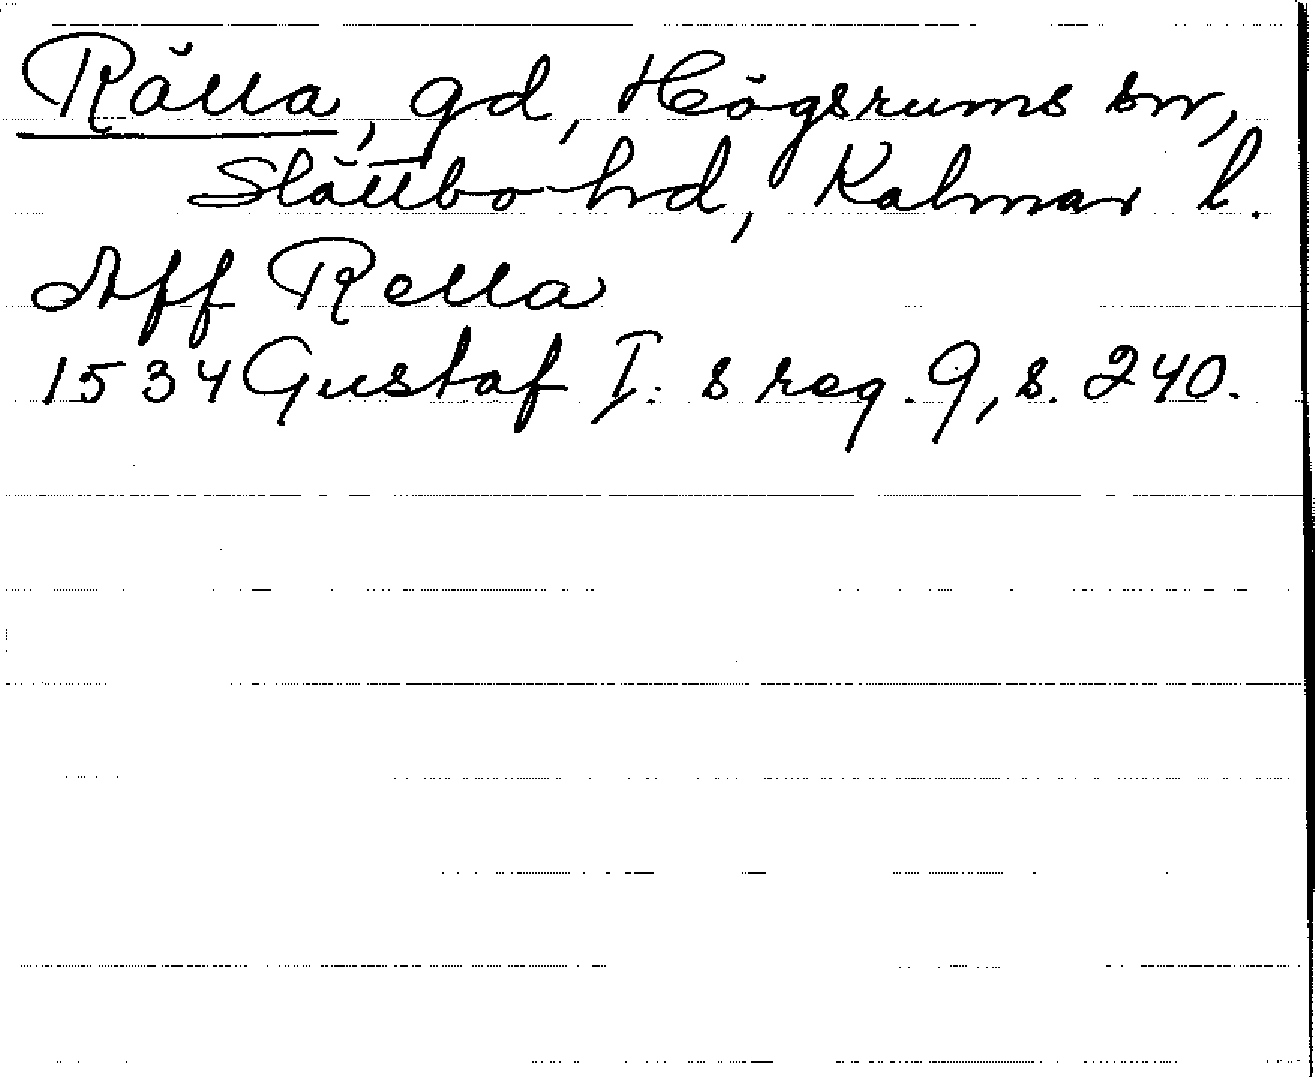 Rälla, gd, Högsrums sn,
Slättbo hd, Kalmar l.
Aff Rella
1534 Gustaf I:s reg. 9, s. 240.